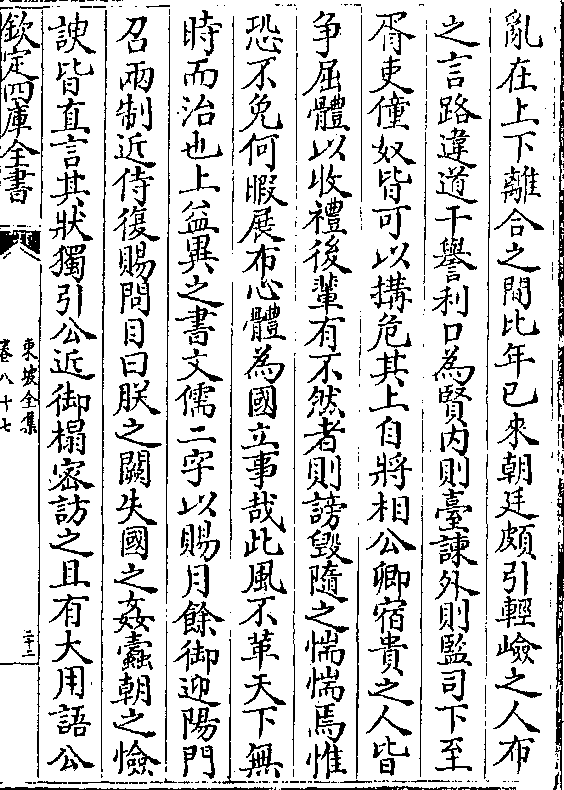 亂在上下離合之間比年已來朝廷頗引輕嶮之人布
之言路違道干譽利口為賢内則臺諫外則監司下至
胥吏僮奴皆可以搆危其上自將相公卿宿貴之人皆
争屈體以收禮後輩有不然者則謗毁隨之惴惴焉惟
恐不免何暇展布心體為國立事哉此風不革天下無
時而治也上益異之書文儒二字以賜月餘御迎陽門
召兩制近侍復賜問目曰朕之闕失國之姦蠹朝之憸
諛皆直言其狀獨引公近御榻密訪之且有大用語公
欽定四庫全書
東坡全集
卷八十七
二十二